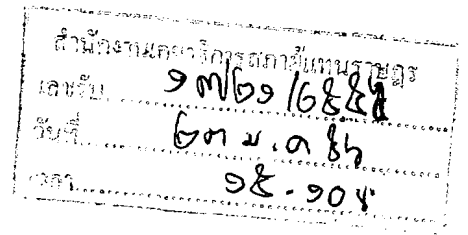 สำนักงานเลขาธิการสภาผู้แทนราษฎร
เลขรับ ๑๗๒๑/๒๕๕๖
วันที่ ๒๓ ม.ค ๕๖
เวลา ๑๕.๑๐ น